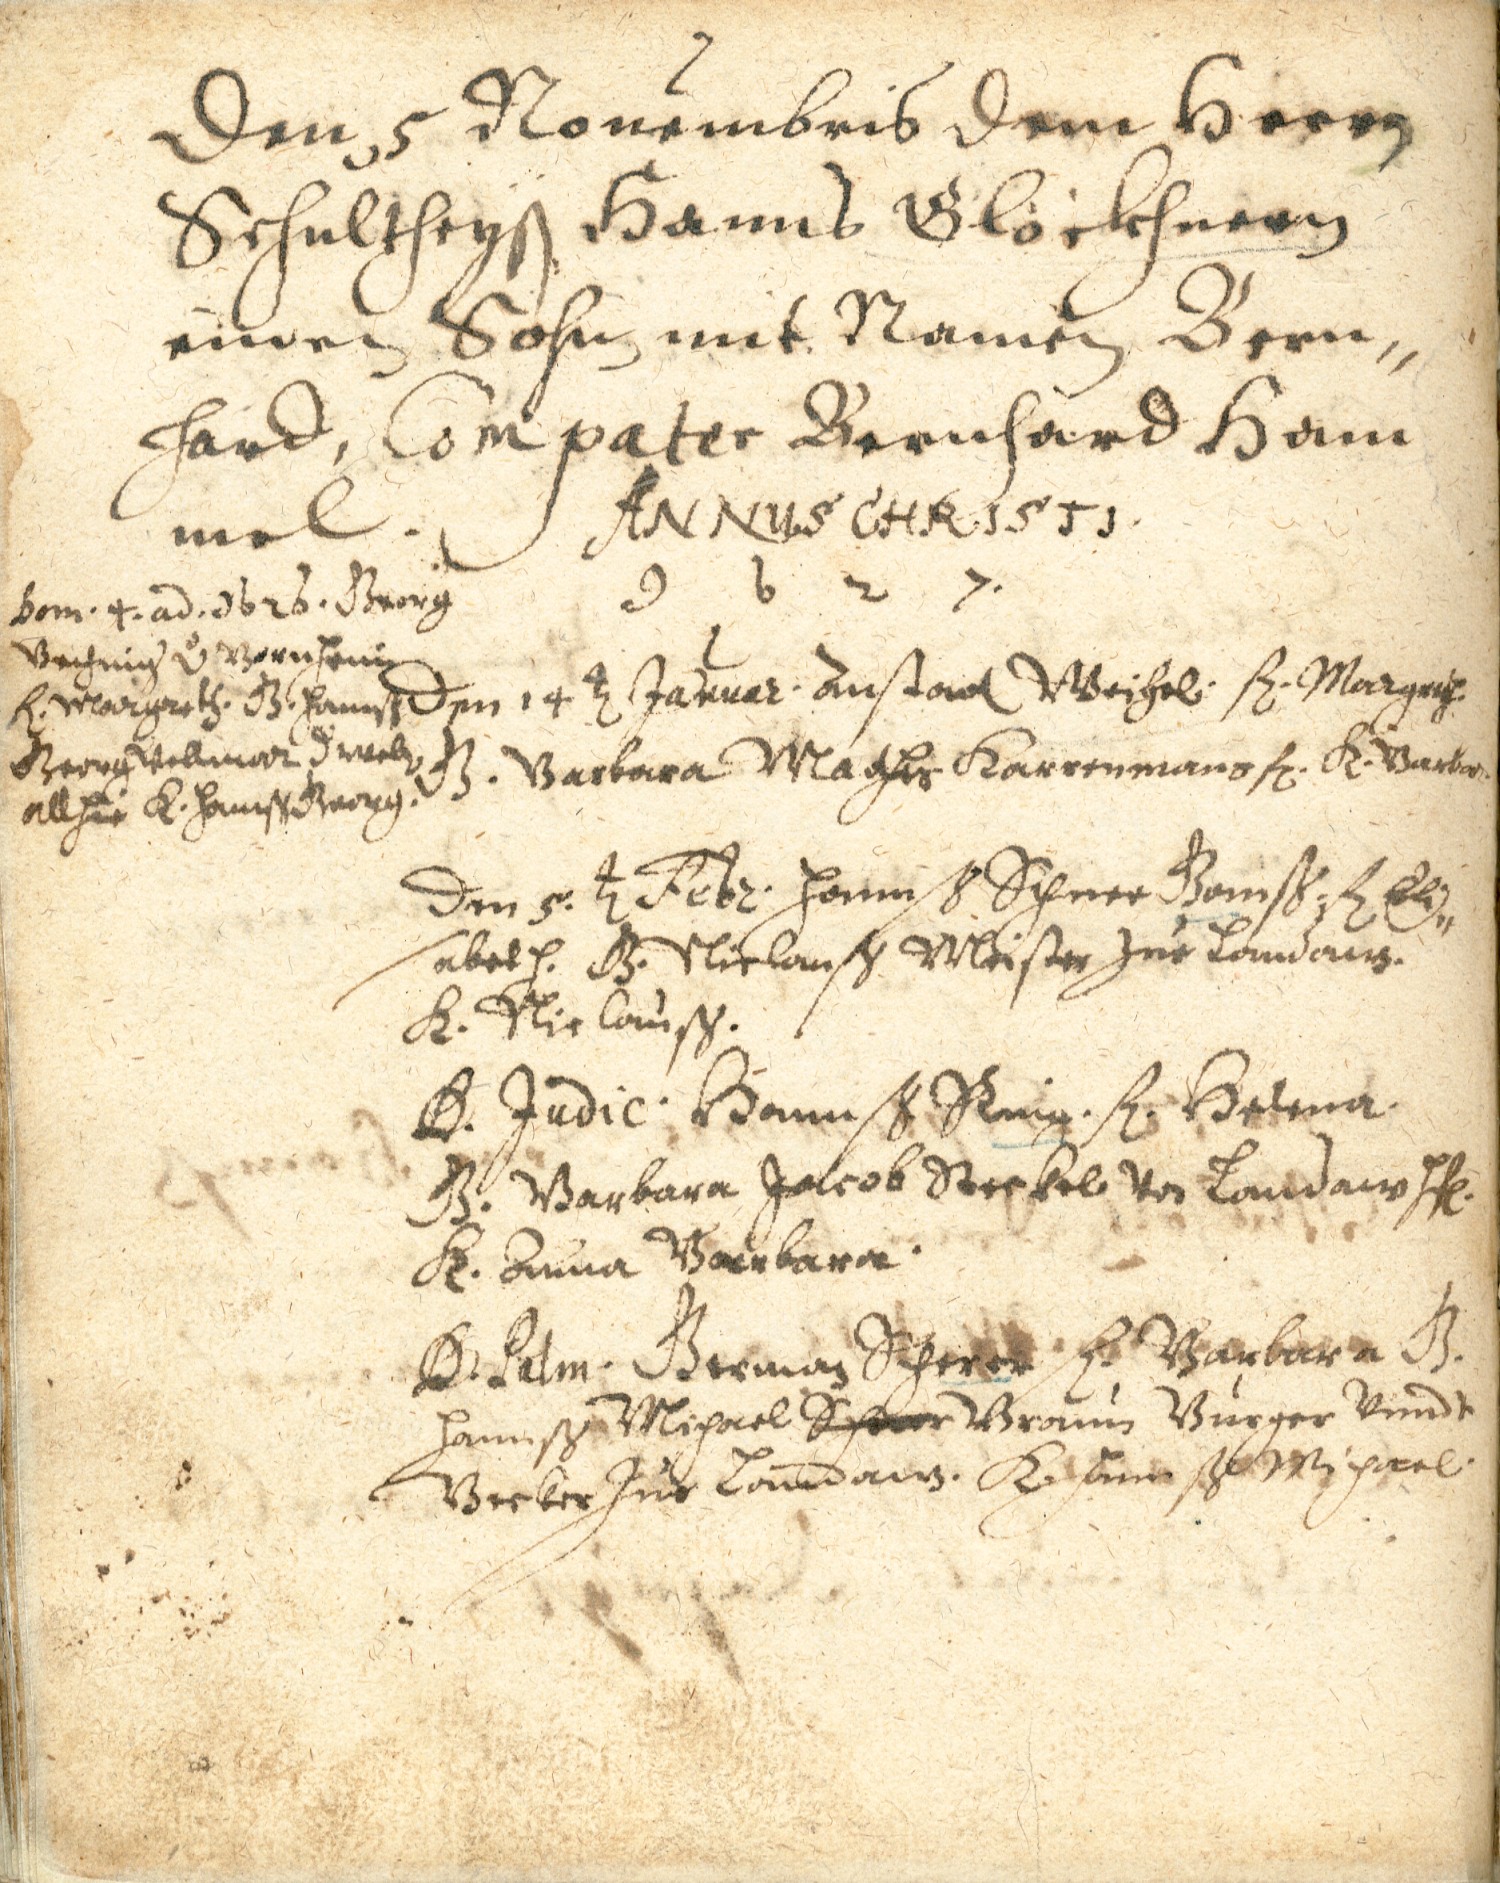 Den 5 Nouembris dem Herrn
Schultheyß Hanns Glöckhnern
einen Sohn mit Namen Bern„
hard, Compater Bernhard Ham
mel.
ANNUS CHRISTI.
1 6 2 7.
Dom. 4. ad. 1626. Georg
h. Margreth. G. Hannß
Georg
allhie K. Hanß Georg.
Den 14 Januar. Anstad Weichel. h. Margreth.
G. Barbara Karrenmans h. K. Barbar.
Den 5. Febr. Hannß h. Eli„
sabeth. G. Niclauß Meister zue Landaw.
K. Niclauß.
D. Judic. Hannß h. Helena.
G. Barbara Jacob von Landaw
K. Anna Barbara.
D. Palm. German Scherer h. Barbara G.
Hannß Michael Braun Burger vnndt
Becker zue Landaw. K. Hannß Michael.